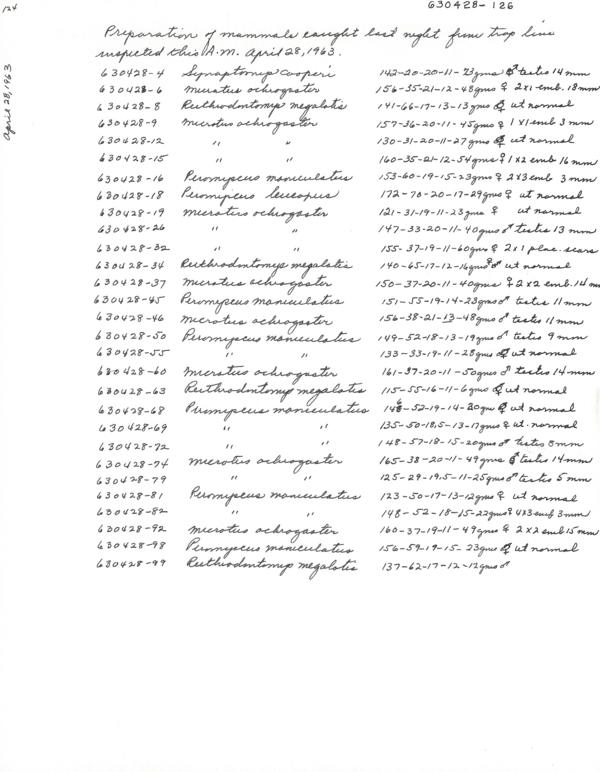 124
630428-126
April 28, 1963
Preparation of mammals caught last night from trap line
inspected this A.M. April 28, 1963.
630428-4 Synaptomys cooperi 142-20-20-11-23gms ♂ testis 14 mm
630428-6 Microtus ochrogaster 156-35-21-12-48gms ♀ 2x1 emb. 18mm
630428-8 Reithrodontomys megalotis 141-66-17-13-13gms ♀ ut normal
630428-9 Microtus ochrogaster 157-36-20-11-45gms ♀ 1x1 emb 3 mm
630428-12 " " 130-31-20-11-27gms ♀ ut normal
630428-15 " " 160-35-21-12-54gms ♀ 1x2 emb 16 mm
630428-16 Peromyscus maniculatus 153-60-19-15-23gms ♀ 2x3 emb 3 mm
630428-18 Peromyscus leucopus 172-70-20-17-29gms ♀ ut normal
630428-19 Microtus ochrogaster 121-31-19-11-23gms ♀ ut normal
630428-26 " " 147-33-20-11-40gms ♂ testis 13 mm
630428-32 " " 155-37-19-11-60gms ♀ 2x1 plac. scars
630428-34 Reithrodontomys megalotis 140-65-17-12-16gms ♀ ut normal
630428-37 Microtus ochrogaster 150-37-20-11-40gms ♀ 2x2 emb. 14 mm
630428-45 Peromyscus maniculatus 151-55-19-14-23gms ♂ testis 11mm
630428-46 Microtus ochrogaster 156-38-21-13-48gms ♂ testis 11mm
630428-50 Peromyscus maniculatus 149-52-18-13-19gms ♂ testis 9 mm
630428-55 " " 133-33-19-11-28gms ♀ ut normal
630428-60 Microtus ochrogaster 161-37-20-11-50gms ♂ testis 14mm
630428-63 Reithrodontomys megalotis 115-55-16-11-6gms ♀ ut normal
630428-68 Peromyscus maniculatus 146-52-19-14-20gm ♀ ut normal
630428-69 " " 135-50-18.5-13-17gms ♀ ut. normal
630428-72 " " 148-57-18-15-20gms ♂ testis 8mm
630428-74 Microtus ochrogaster 165-38-20-11-49gms ♂ testis 14mm
630428-79 " " 125-29-19.5-11-25gms ♂ testis 5 mm
630428-81 Peromyscus maniculatus 123-50-17-13-12gms ♀ ut normal
630428-82 " " 148-52-18-15-22gms ♀ 4x3 emb 3mm
630428-92 Microtus ochrogaster 160-37-19-11-49gms ♀ 2x2 emb 15mm
630428-98 Peromyscus maniculatus 156-59-19-15-23gms ♀ ut normal
630428-99 Reithrodontomys megalotis 137-62-17-12-12gms ♂